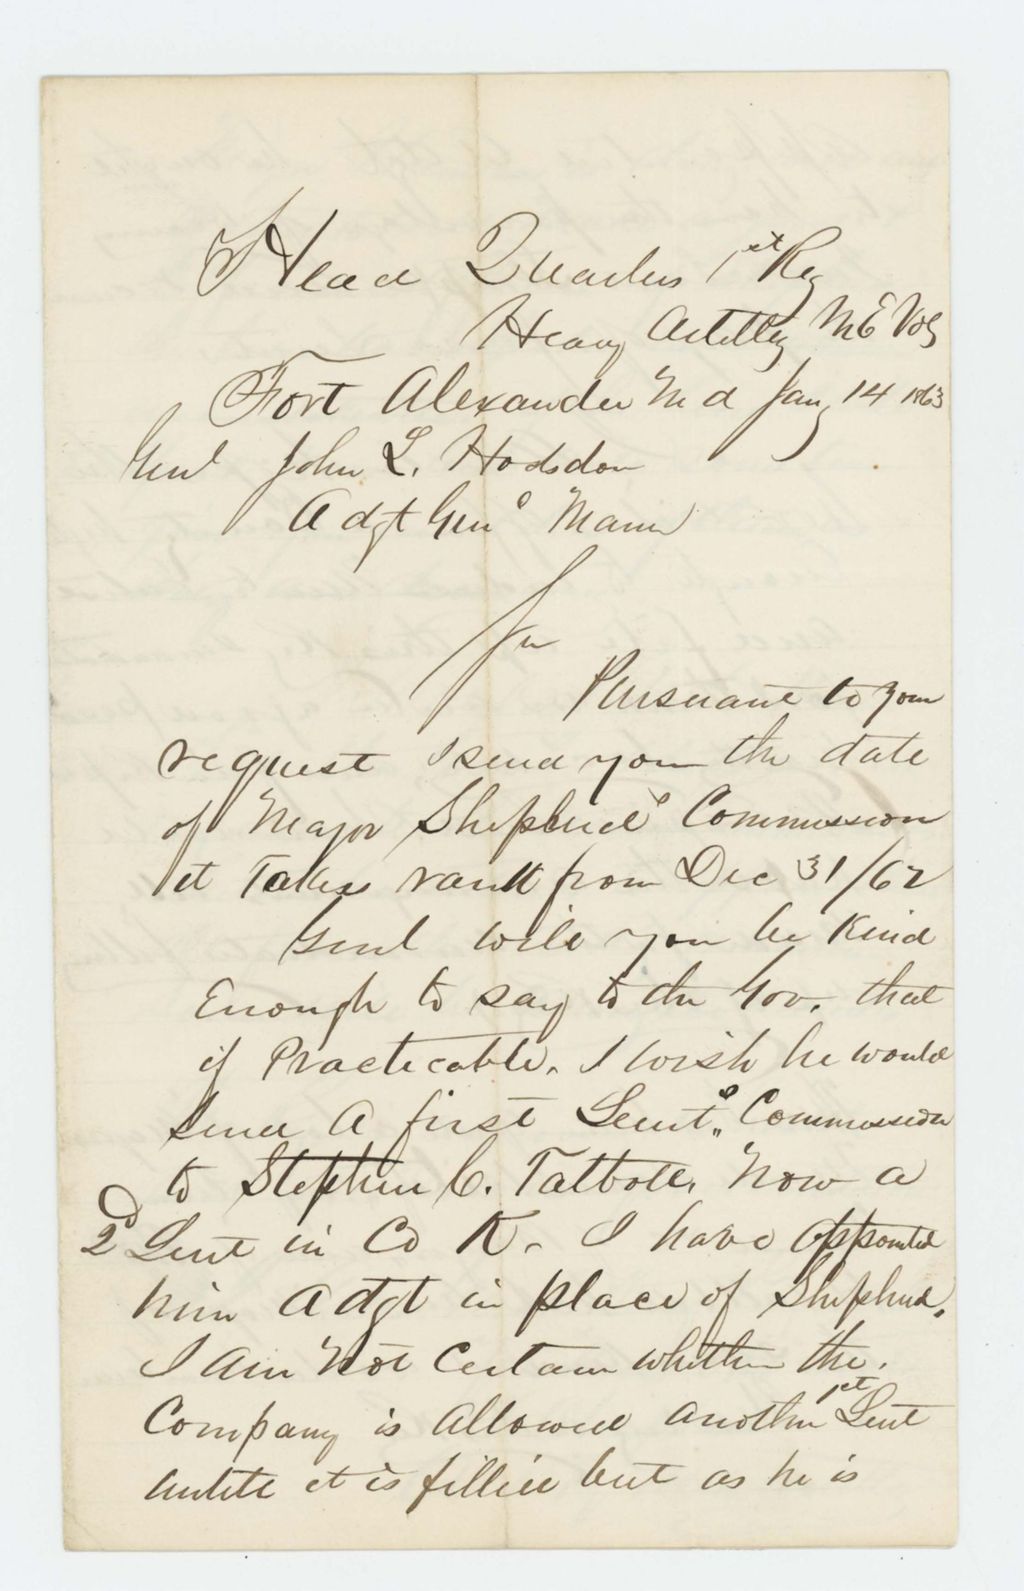 Head Quarters 1st Reg
Heavy Artillery ME Vols
Fort Alexander Md Jany 14 1863
Genl John L. Hodsdon
Adgt Genl Maine
Sir
Pursuant to your
request I send you the date
of Major Shepherds Commission
it Takes rank from Dec 31/62
Genl will you be Kind
Enough to say to the Gov. that
if Practicable. I wish he would
send A first Leiut.s Commission
to Stephen C. Talbott. Now a
2d Leut in Co K. I have appointed
him Adgt in place of Shepherd.
I Am Not Certain whether the.
Company is Allowed another 1st Leut
untill it is filled but as he is